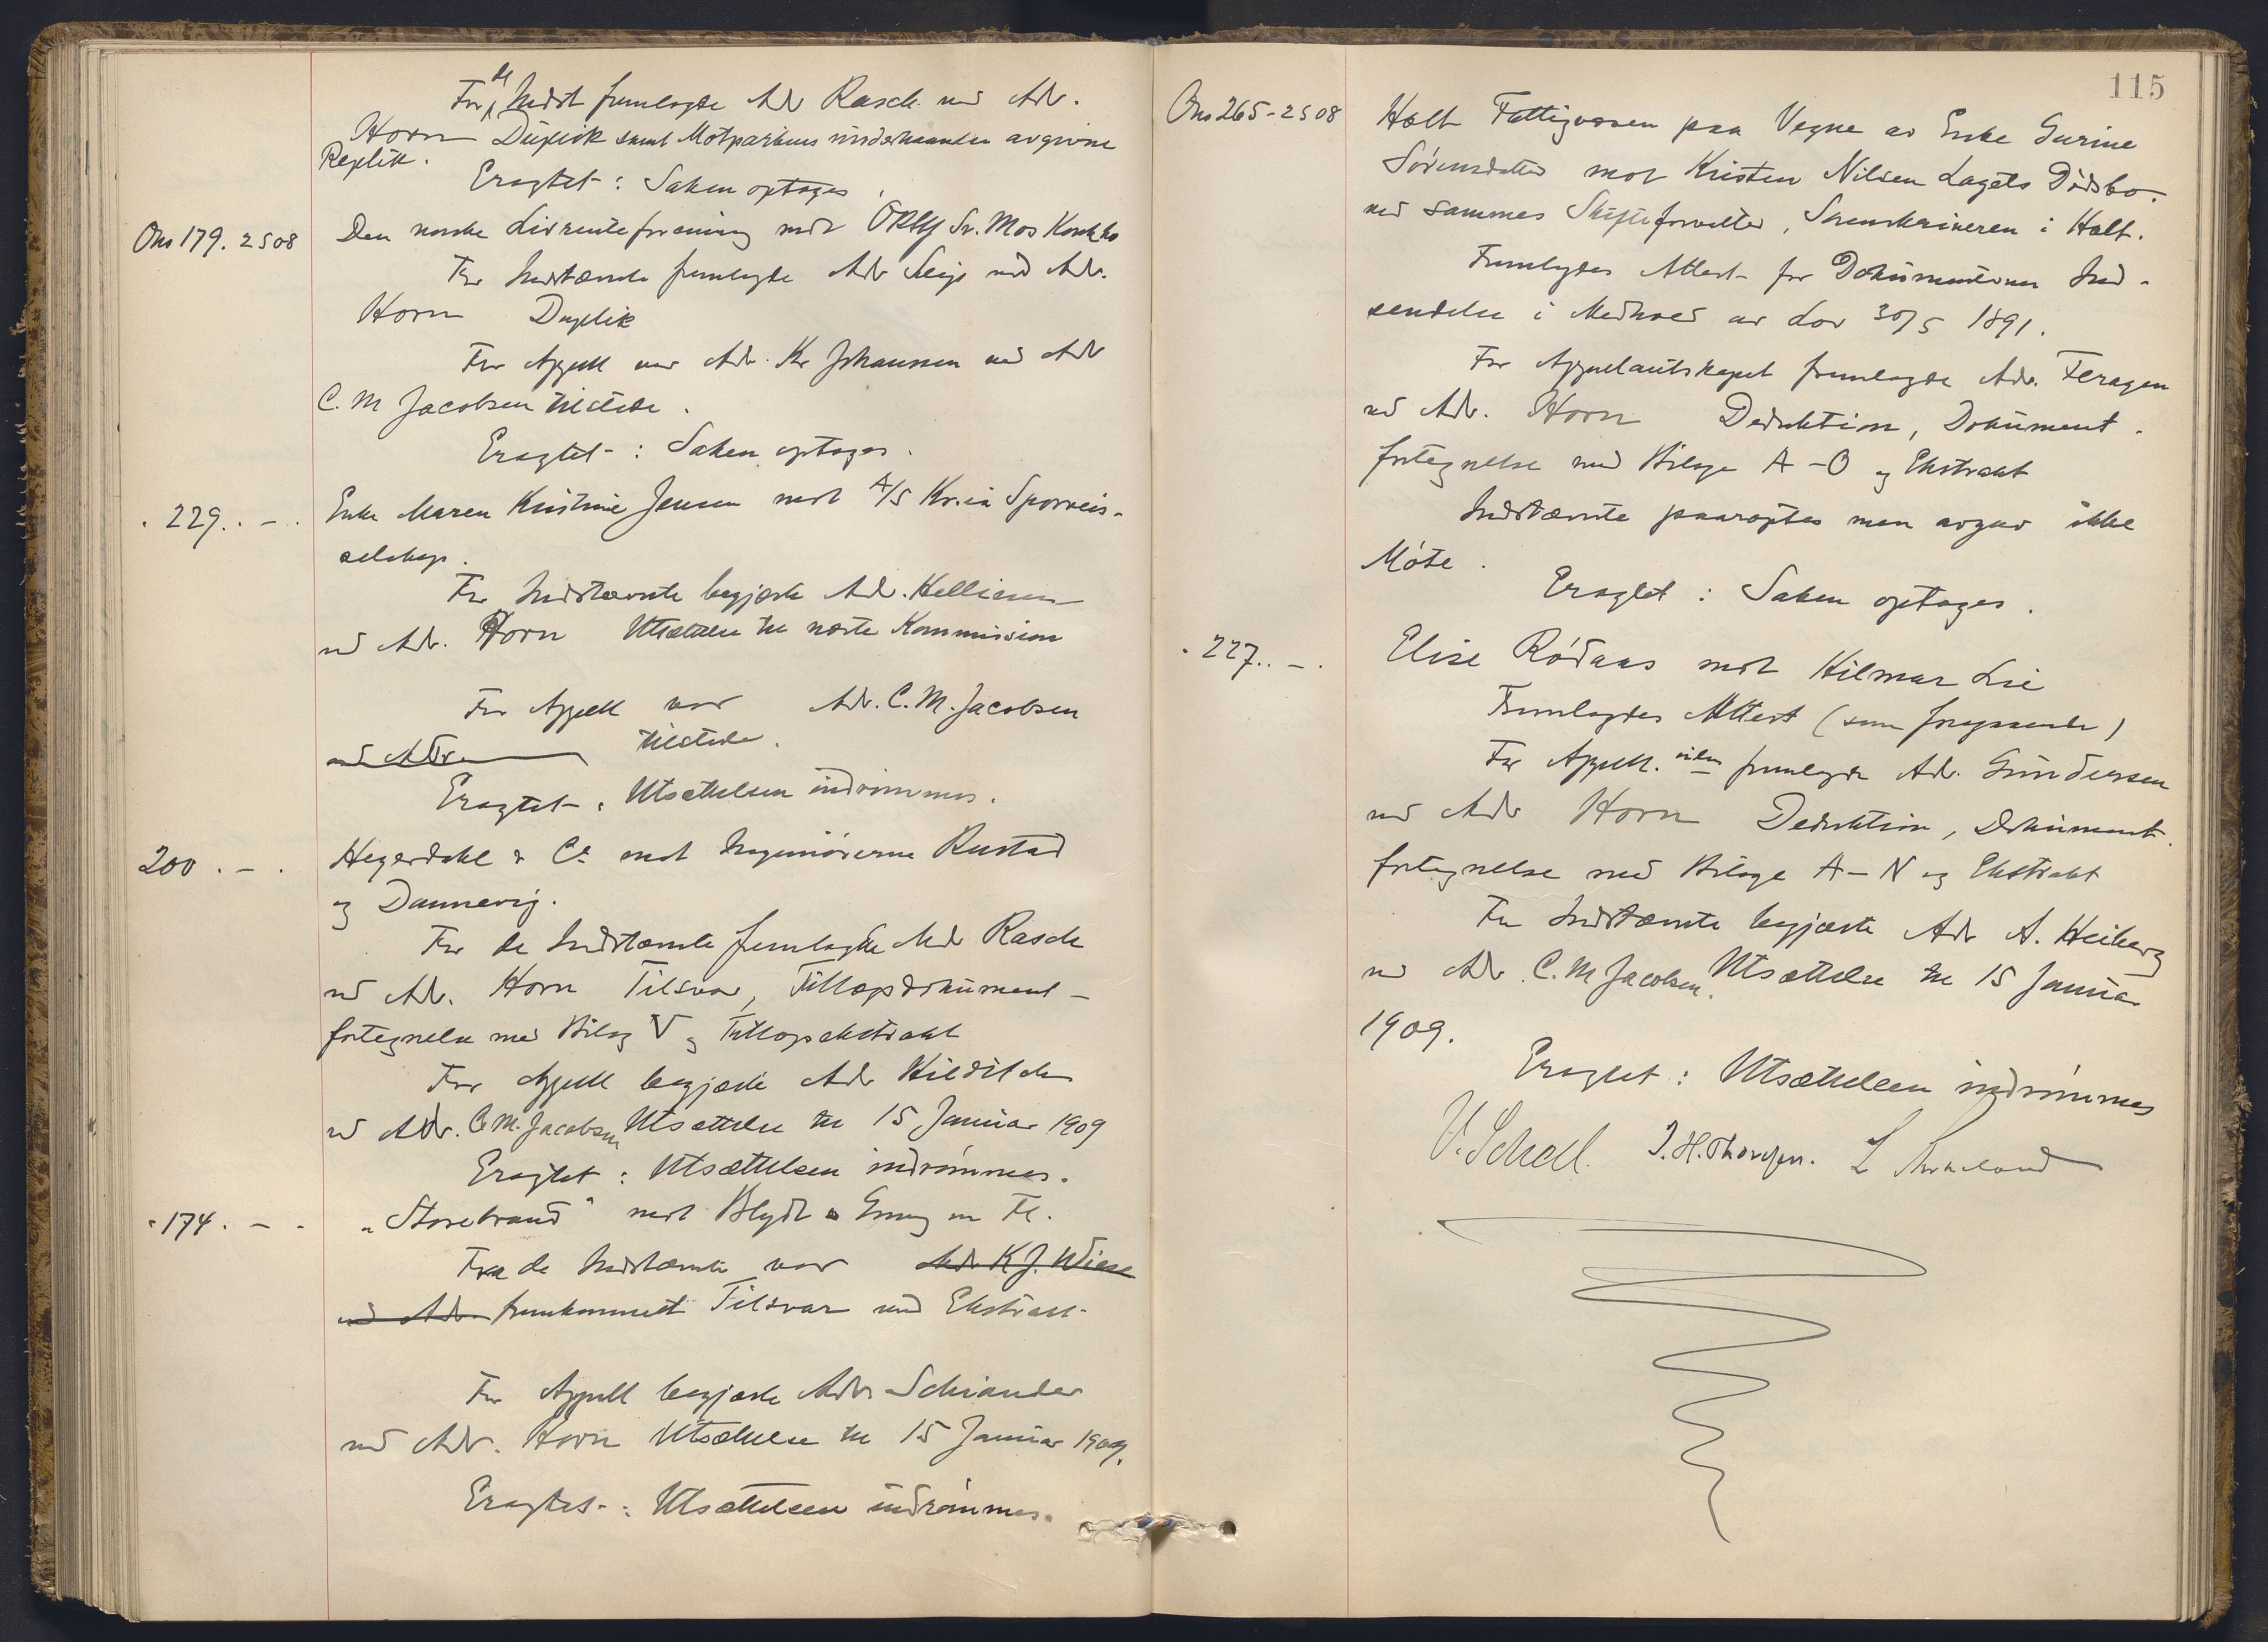 For de Indst fremlagde Adv Rasch ved Adv.
Horn Duplik samt Motpartens underhaanden avgivne
Replik.
Eragtet: Saken optages.
Ons 179. 2 S 08 Den norske Livrenteforening mot Sr. Mos Konkbo
For Indstævnte fremlagde Adv ved Adv.
Horn Duplik
For Appell var Adv. Kr Johanssen ved Adv
C. M Jacobsen tilstede.
Eragtet: Saken optages.
" 229. . - . Enke Maren Kristine Jensen mot A/S Kr.ia Sporveis-
selskap.
For Indstævnte begjærte Adv. Kelliesen
ved Adv. Horn Utsættelse til næste Kommission
For Appell var Adv. C. M. Jacobsen
ved Adv. tilstede.
Eragtet: Utsættelsen indrømmes.
200 . - . Hegerdahl & Co mot Ingeniørerne Rustad
og Dannevig.
For de Indstævnte fremlagde Adv Rasch
ved Adv. Horn Tilsvar, Tillægsdokument-
fortegnelse med Bilag V og Tillægsekstrakt
For Appell begjærte Adv Hilditch
ved Adv. C. M. Jacobsen Utsættelse til 15 Januar 1909
Eragtet: Utsættelsen indrømmes.
" 174. - - "Storebrand" mot Blydt & m Fl.
For de Indstævnte var Adv. K J. Wiese
ved Adv. fremkommet Tilsvar med Ekstrakt
For Appell begjærte Adv Schiander
ved Adv. Horn Utsættelse til 15 Januar 1909.
Eragtet: Utsættelsen indrømmes.
115
Ons 265 - 2 S 08 Holt Fattigvæsen paa Vegne av Enke Gurine
Sørensdatter mot Kristen Nilsen Lagets Dødsbo
ved sammes Skifteforvalter, Sorenskriveren i Holt.
Fremlagdes Attest for Dokumenternes Ind-
sendelse i Medhold av Lov 30/5 1891.
For Appellantskapet fremlagde Adv. Feragen
ved Adv. Horn Deduktion, Dokument-
fortegnelse med Bilage A - O og Ekstrakt
Indstævnte paaroptes men avgav ikke
Møte.
Eragtet: Saken optages.
" 227. . - . Elise Rødaas mot Hilmar Lie
Fremlagdes Attest (som foregaaende)
For Appell. inden fremlagde Adv. Gundersen
ved Adv Horn Deduktion, Dokument-
fortegnelse med Bilage A - N og Ekstrakt
For Indstævnte begjærte Adv A. Heiberg
ved Adv. C. M Jacobsen. Utsættelse til 15 Januar
1909.
Eragtet: Utsættelsen indrømmes
V. Scheel. J. H. Thoresen.